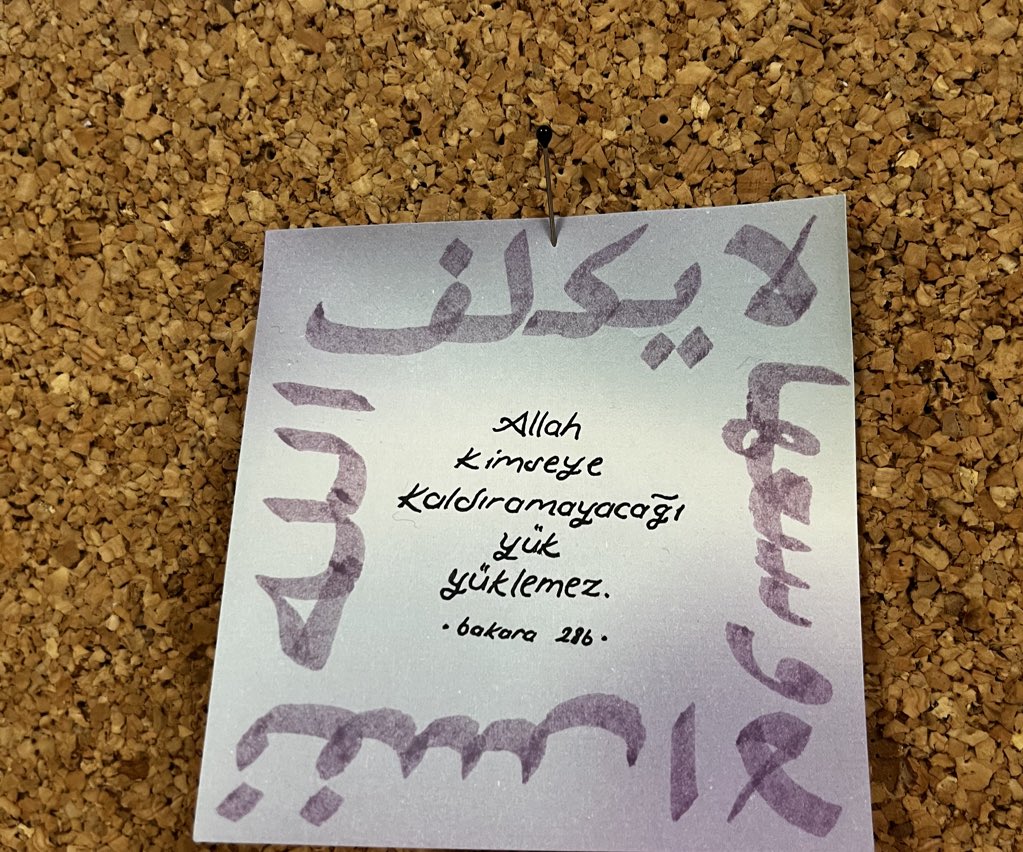 لا يكلف
الله
نفسا الا
وسعها
Allah
kimseye
kaldıramayacağı
yük
yüklemez.
• bakara 286 •